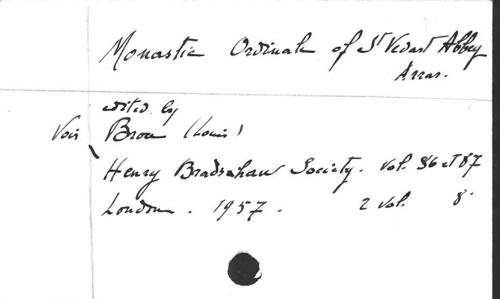 Monastic Ordinale of St Vedast Abbey
Arras.
edited by
Vois Brou (Louis)
Henry Bradshaw Society. vol. 86 et 87
London. 1957. 2 vol. 8°